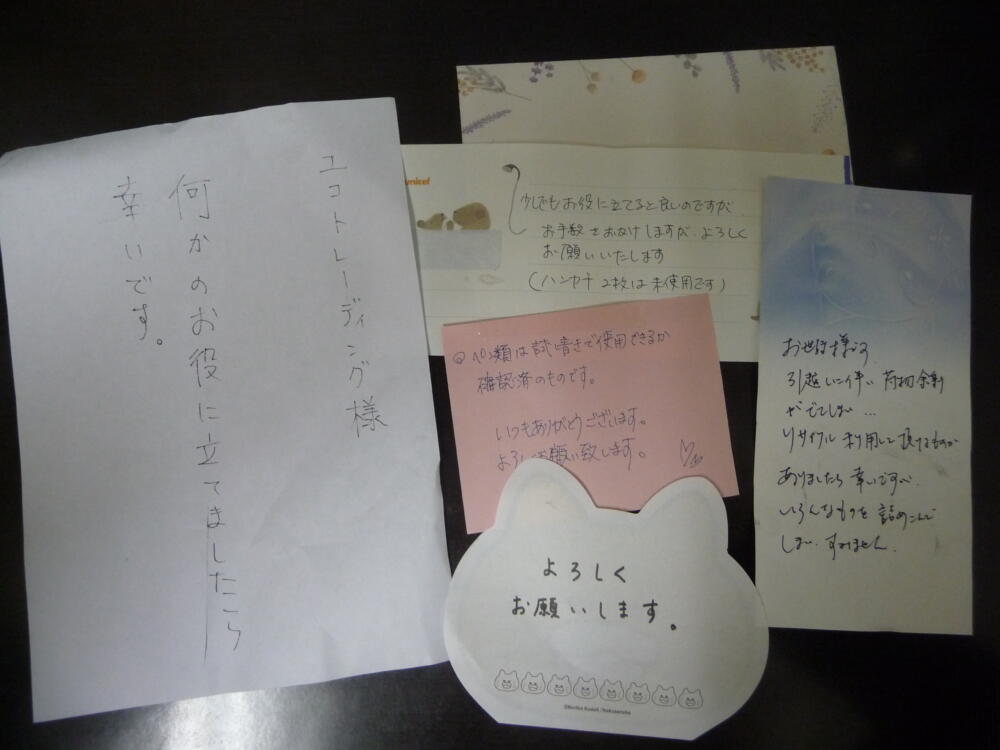 エコトレーディング様
何かのお役に立てましたら
幸いです。
unicef
少しでもお役に立てると良いのですが
お手数をおかけしますが、よろしく
お願いいたします
(ハンカチ 2枚は未使用です)
◎ペン類は試し書きで使用できるか
確認済のものです。
いつもありがとうございます。
よろしくお願い致します。
お世話様です。
引越しに伴い荷物余剰
がでてしまい…
リサイクル利用して頂けるものが
ありましたら幸いですが、
いろんなものを詰めこんで
しまい、すみません。
よろしく
お願いします。